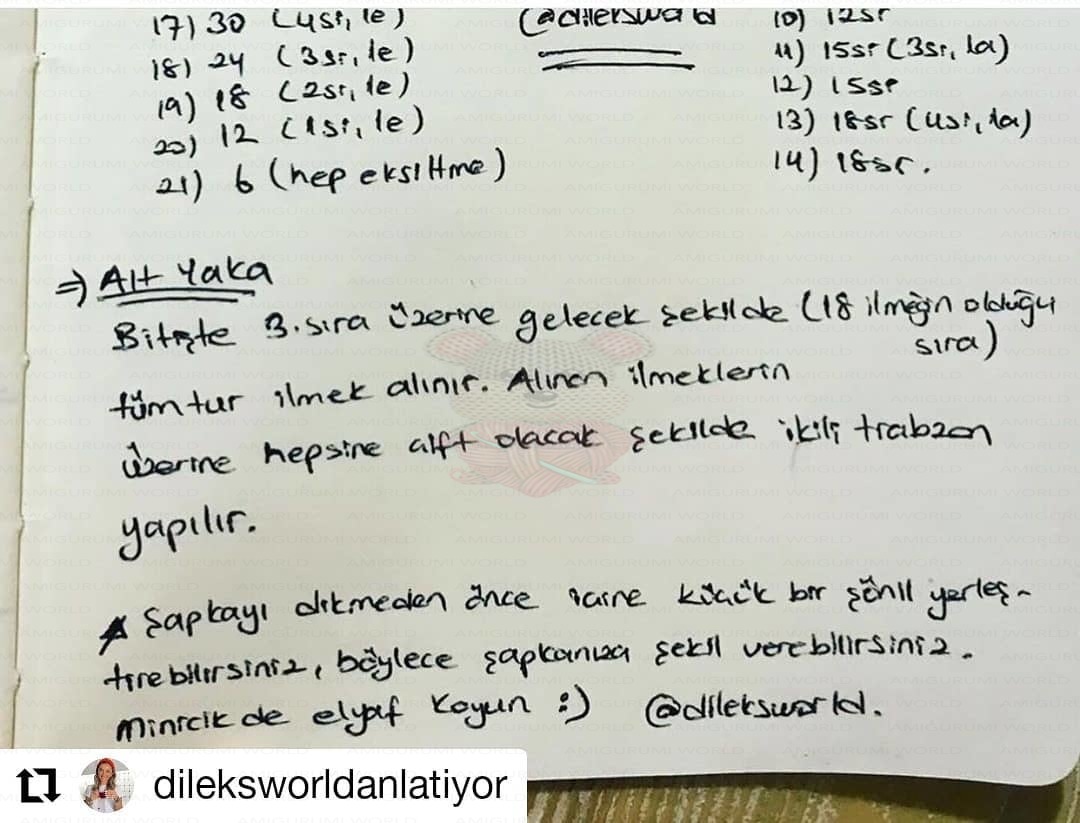 17) 30 (4sr, le)
18) 24 (3sr, le)
19) 18 (2sr, le)
20) 12 (1sr, le)
21) 6 (hep eksiltme)
@dileksworld
10) 12sr
11) 15sr (3sr, la)
12) 15sr
13) 18sr (4sr, la)
14) 18sr.
⇒) Alt Yaka
Bitişte 3.sıra üzerine gelecek şekilde (18 ilmeğin olduğu
sıra)
tüm tur ilmek alınır. Alınan ilmeklerin
üzerine hepsine çift olacak şekilde ikili trabzan
yapılır.
Şapkayı dikmeden önce içine küçük bir şönil yerleş-
tirebilirsiniz, böylece şapkanıza şekil verebilirsiniz.
Minicik de elyaf koyun :) @dileksworld.
AMIGURUMI WORLD
dileksworldanlatiyor